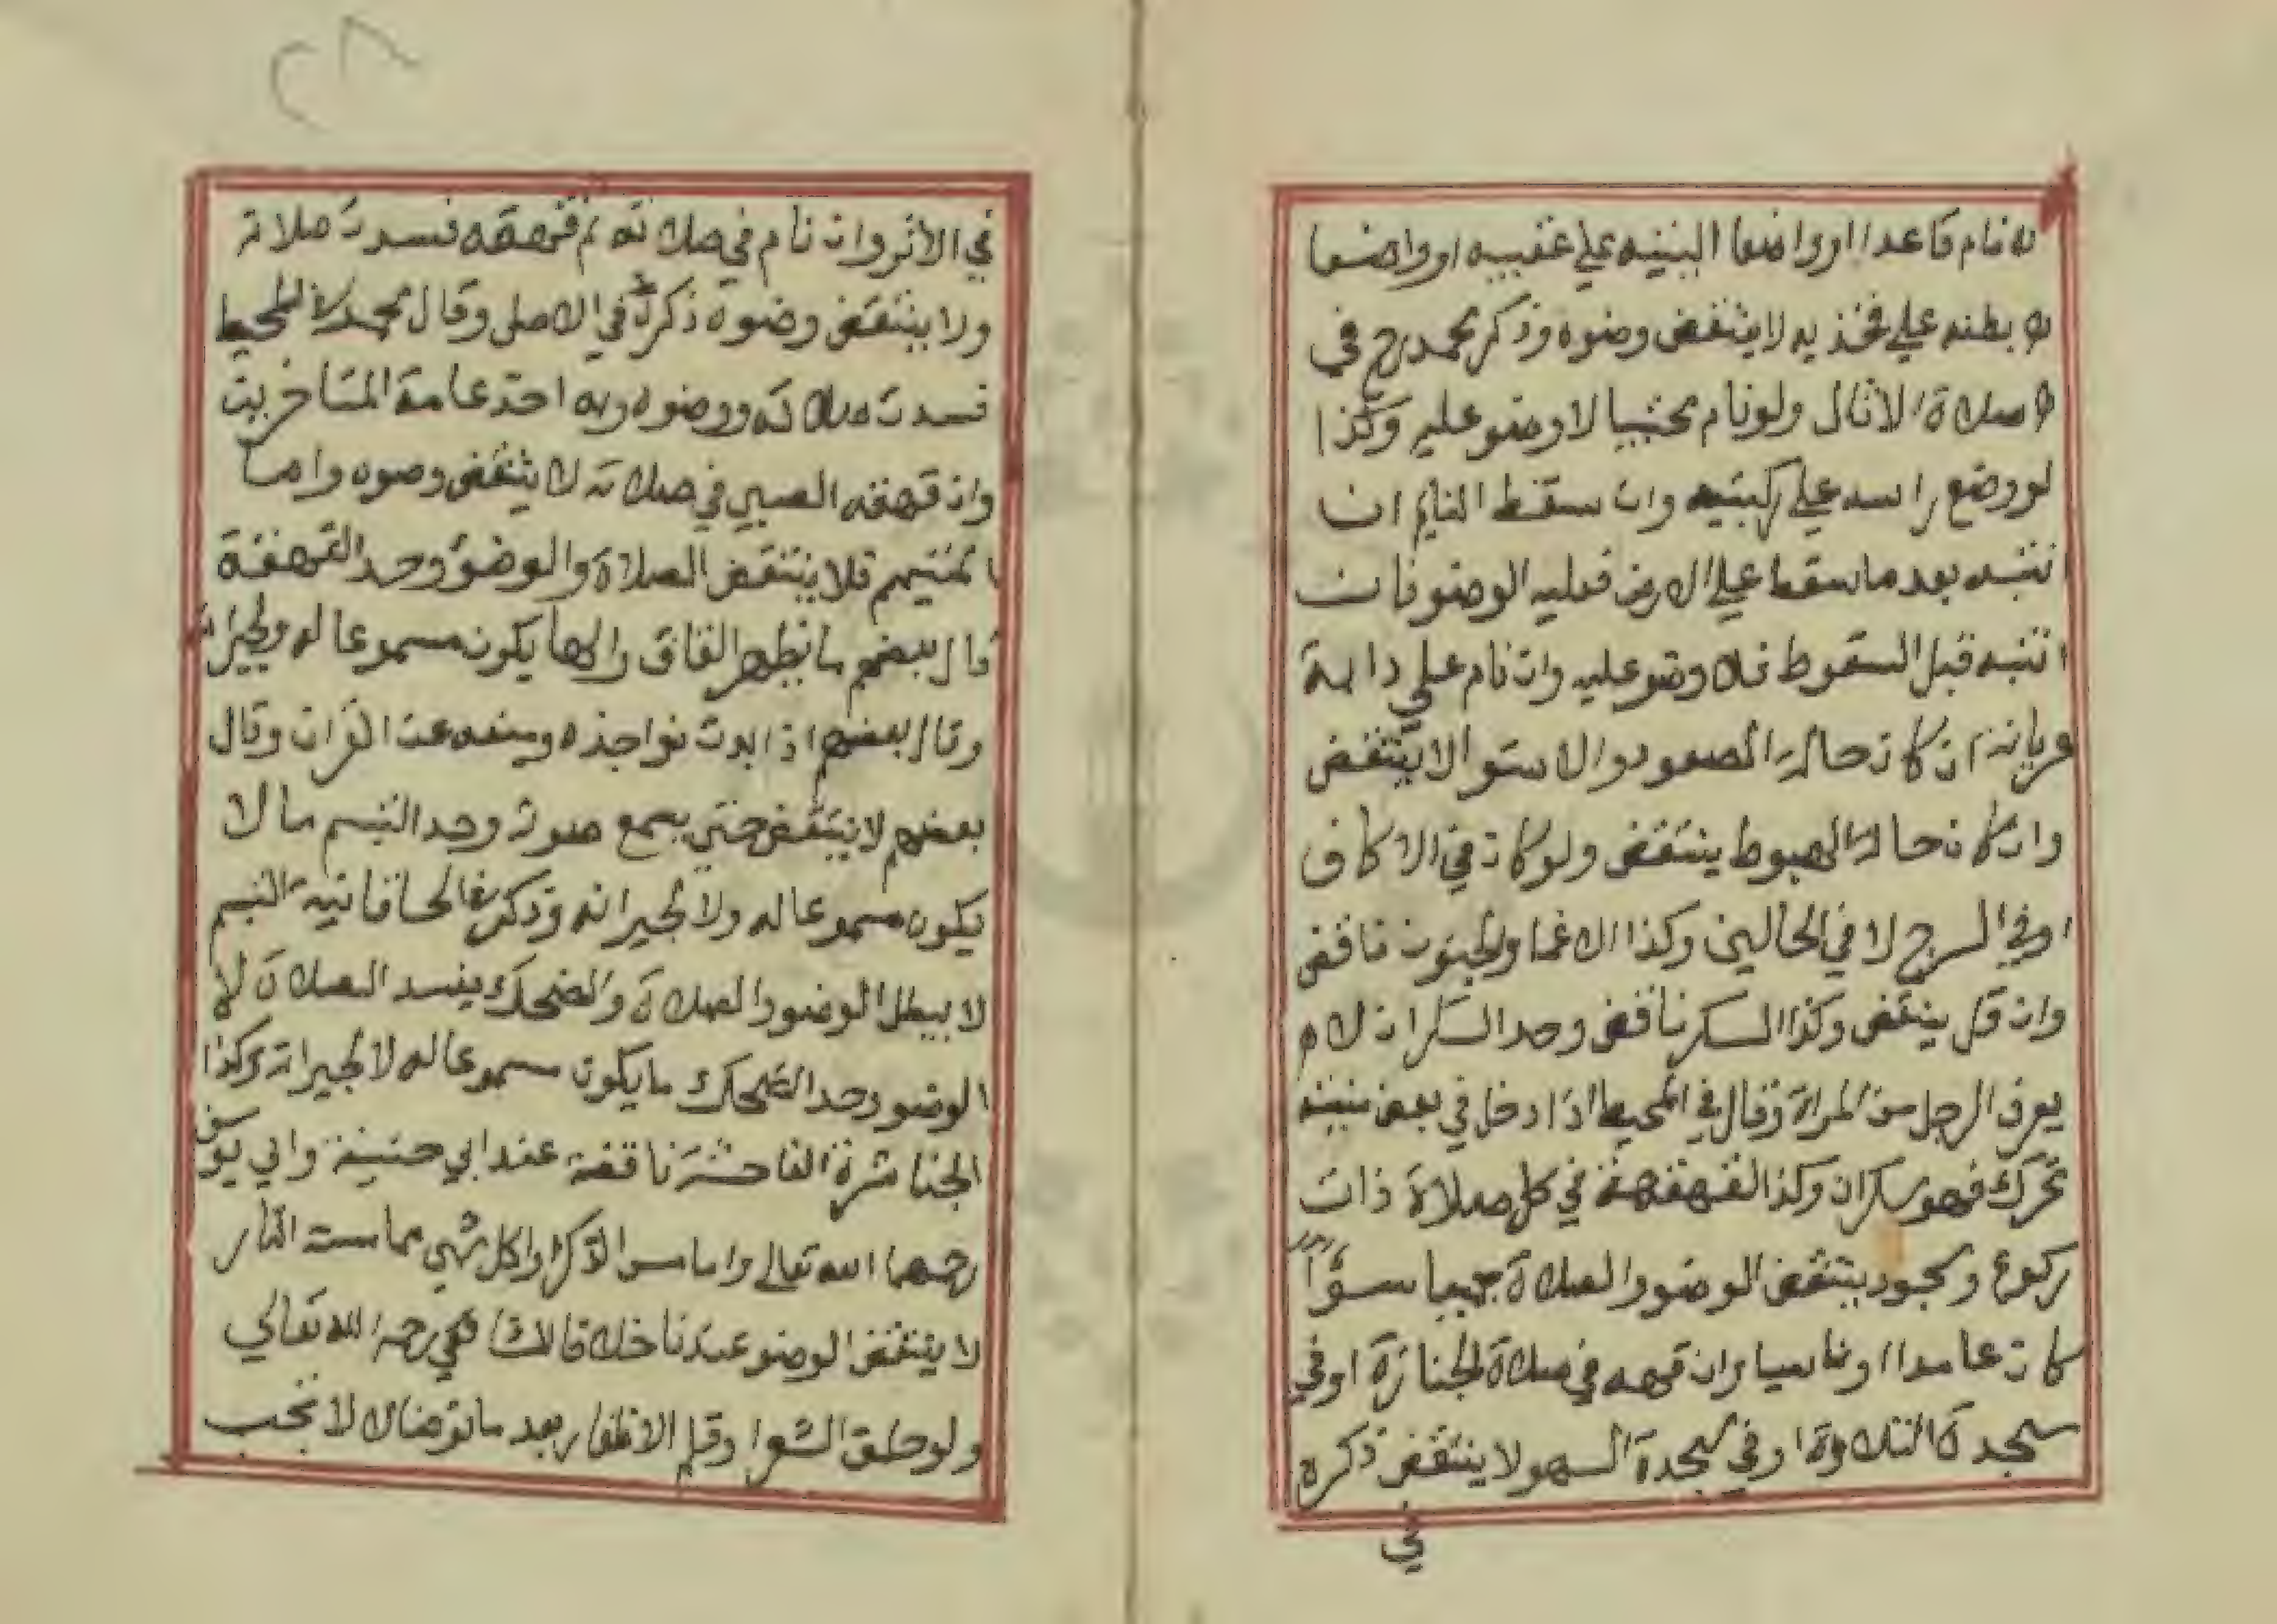 نام قاعدا او واضعا اليتيه علي عقبيه او واضعا
بطنه علي فخذيه لا ينتقض وضوه وذكر محمد رح في
صلاة الاثال ولو نام محتبيا لا وضو عليه وكذا
لو وضع راسه علي ركبتيه وان سقط النايم ان
نتبه بعد ما سقط علي الارض فعليه الوضو فان
انتبه قبل السقوط فلا وضو عليه وان نام علي دابة
عريانة ان كان حالة الصعود والاستوا لا ينتقض
وان كان حالة الهبوط ينتقض ولو كان في الاكاف
او في السرج لا في الحالين وكذا الاغما والجنون ناقض
وان قل ينتقض وكذا السكر ناقض وحد السكران لا م
يعرف الرجل من المراة وقال في المحيط اذا دخل في بعض
تحرك فهو سكران وكذا القهقهة في كل صلاة ذات
ركوع وسجود ينتقض الوضو والصلاة جميعا سوآ
كان عامدا او ناسيا وان قهقه في صلاة الجنازة او في
سجدة التلاوة او في سجدة السهو لا ينتقض ذكره
في
٢٨
في الاثر وان نام في صلاته ثم قهقه فسدت صلاته
ولا ينتقض وضوه ذكره في الاصل وقال محمد المحيط
فسدت صلاته ووضوه وبه اخذ عامة المتاخرين
وان قهقه الصبي في صلاته لا ينتقض وضوه واما
فلا ينتقض الصلاة والوضؤ وحد القهقهة
قال بعضهم ما يظهر القاف والها يكون مسموعا له ولجيرانه
وقال بعضهم اذا بدت نواجذه ومنعه عن القران وقال
بعضهم لا ينتقض حتي يسمع صوته وحد التبسم ما لا
يكون مسموعا له ولا لجيرانه وذكر في الخاقانية التبسم
لا يبطل الوضو والصلاة والضحك يفسد الصلاة لا
الوضو وحد الضحك ما يكون مسموعا له لا لجيرانه وكذا
المباشرة الفاحشة ناقضة عند ابي حنيفة وابي يوسف
رحمهما الله تعالي واما مس الذكر واكل شي مما مسته النار
لا ينتقض الوضو عندنا خلافا لشافعي رحمه الله تعالي
ولو حلق الشعر او قلم الاظفار بعد ما توضا لا تجب